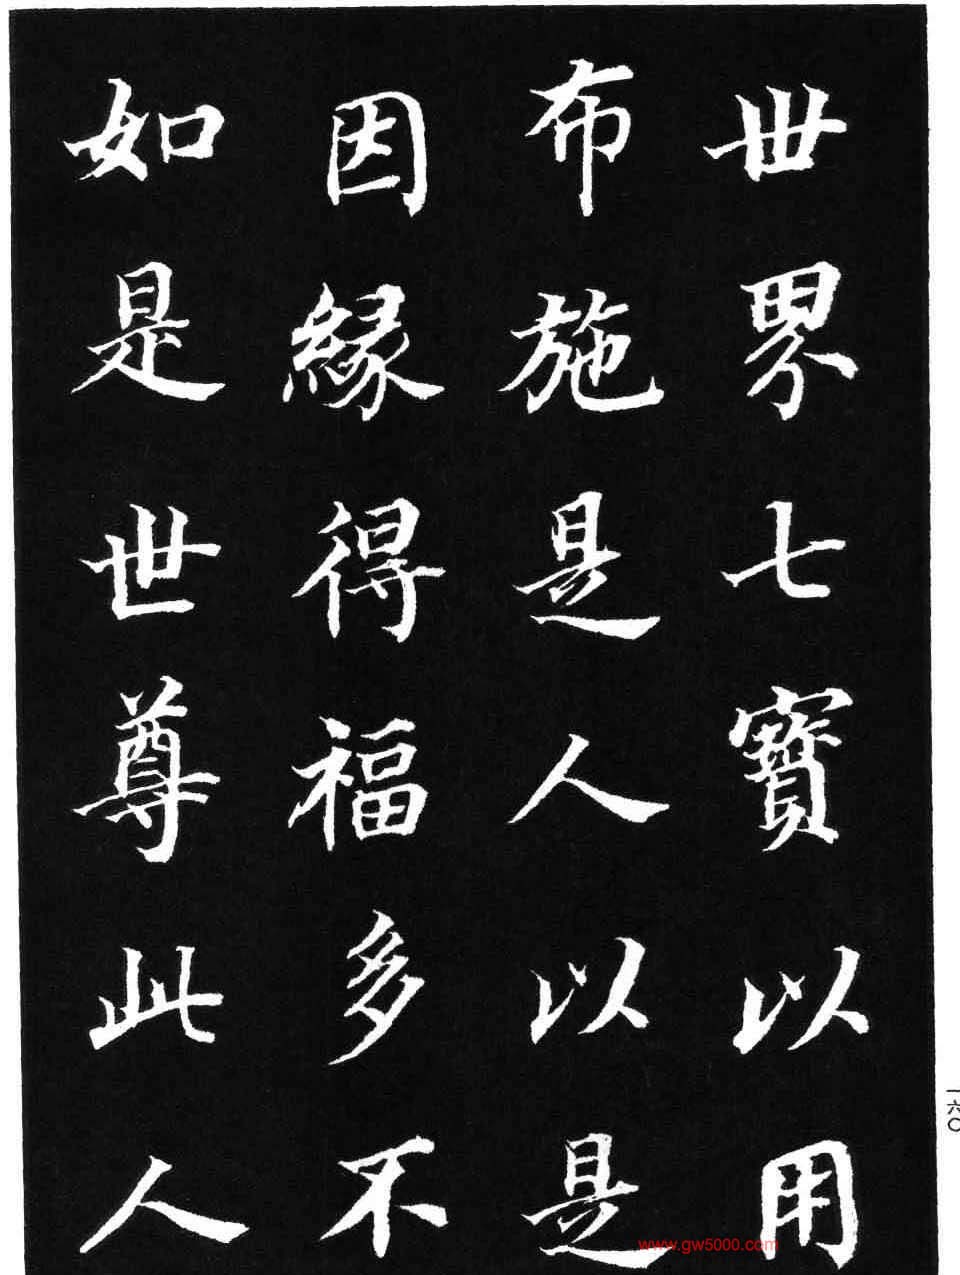 世界七寶以用
布施是人以是
因緣得福多不
如是世尊此人
一六〇
www.gw5000.com